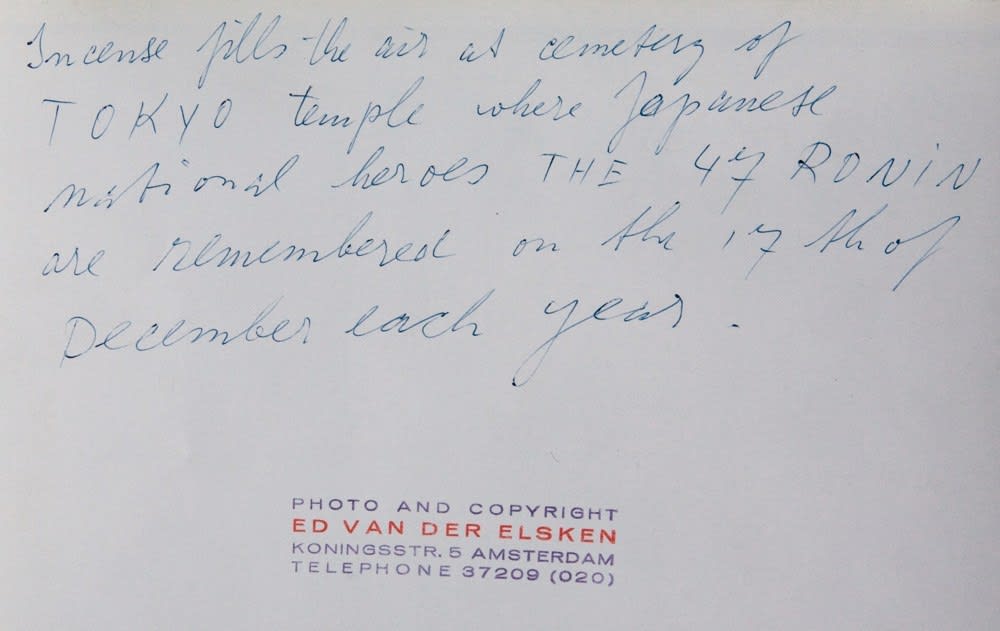 Incense fills the air at cemetery of
TOKYO temple where Japanese
national heroes THE 47 RONIN
are remembered on the 17 th of
December each year.
PHOTO AND COPYRIGHT
ED VAN DER ELSKEN
KONINGSSTR. 5 AMSTERDAM
TELEPHONE 37209 (020)